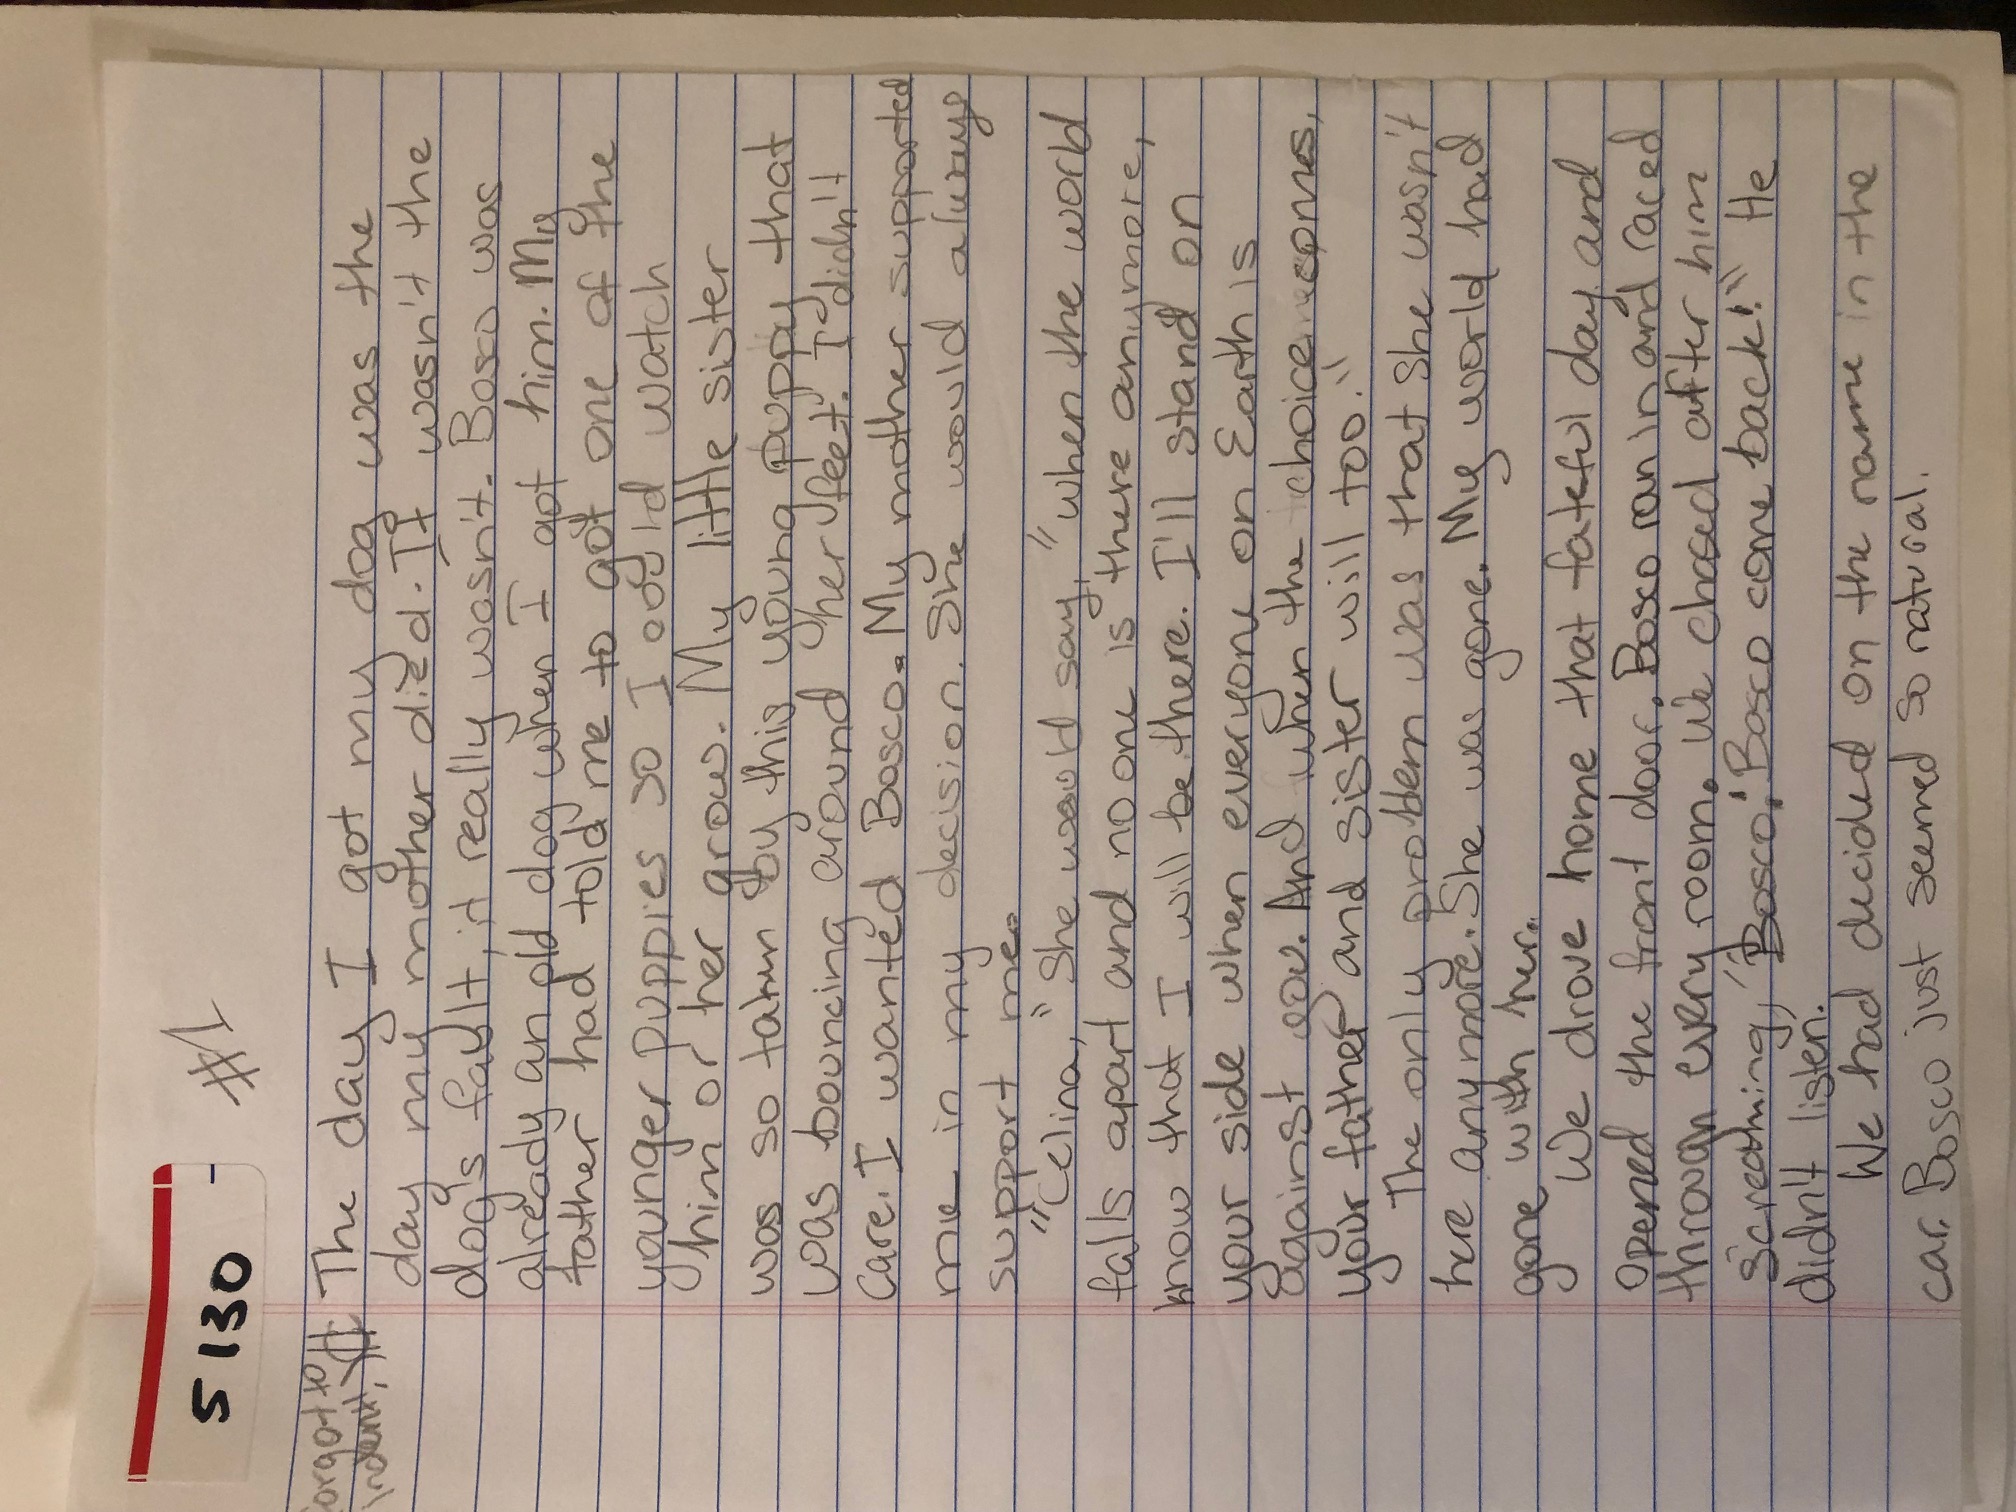 5130
#1
forgot to
indent!
The day I got my dog was the
day my mother died. It wasn't the
dog's fault, it really wasn't. Bosco was
already an old dog when I got him. My
father had told me to got one of the
younger puppies so I could watch
him or her grow. My little sister
was so taken by this young puppy that
was bouncing around her feet. I didn't
care. I wanted Bosco. My mother supported
me in my decision. She would always
support me.
"Celina," She would say, "when the world
falls apart and no one is there anymore,
know that I will be there. I'll stand on
your side when everyone on Earth is
against you. And when the choice comes,
your father and sister will too."
The only problem was that she wasn't
here anymore. She was gone. My world had
gone with her.
We drove home that fateful day and
opened the front door. Bosco ran in and raced
through every room. We chased after him
screaming, "Bosco! Bosco come back!" He
didn't listen.
We had decided on the name in the
car. Bosco just seemed so natural.